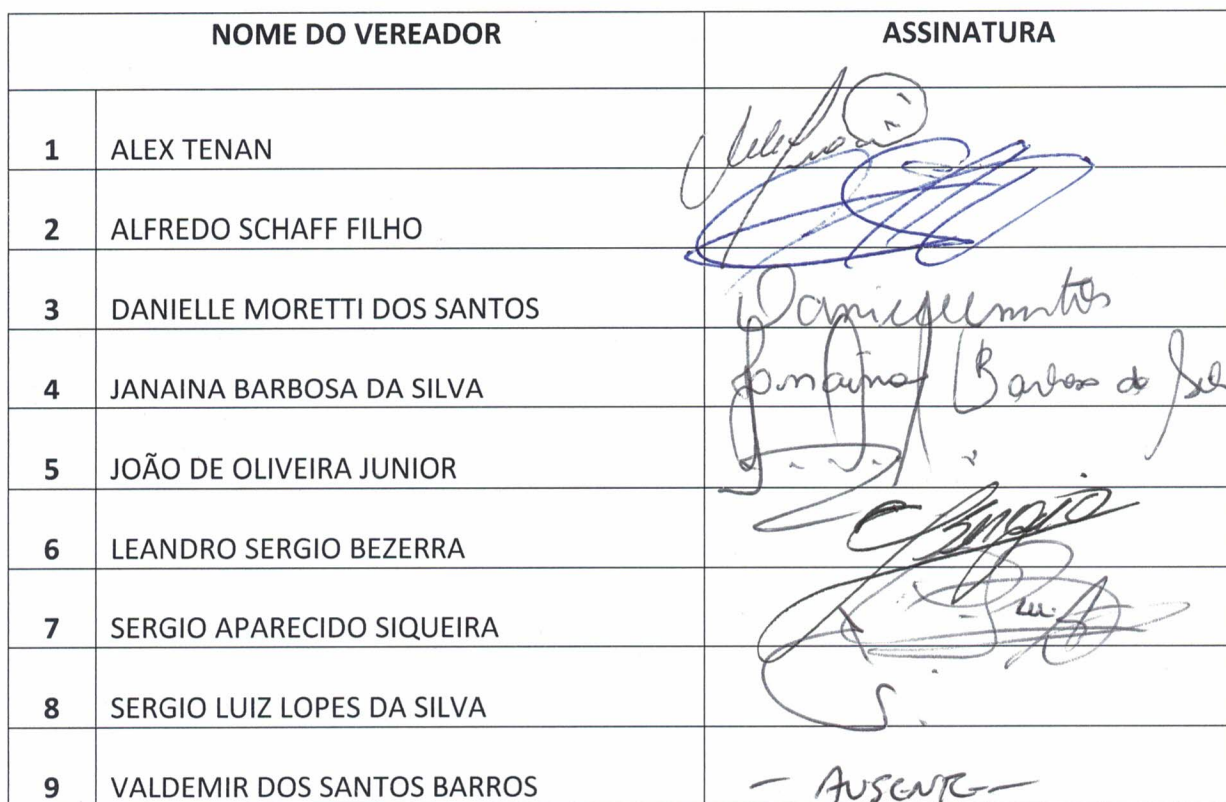 NOME DO VEREADOR ASSINATURA
1 ALEX TENAN
2 ALFREDO SCHAFF FILHO
3 DANIELLE MORETTI DOS SANTOS
4 JANAINA BARBOSA DA SILVA Janaina Barbosa da
5 JOÃO DE OLIVEIRA JUNIOR
6 LEANDRO SERGIO BEZERRA
7 SERGIO APARECIDO SIQUEIRA
8 SERGIO LUIZ LOPES DA SILVA
9 VALDEMIR DOS SANTOS BARROS - AUSENTE -